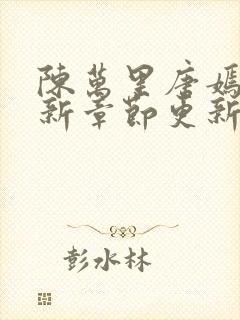 陳萬里唐嫣
新章節更新
彭水林